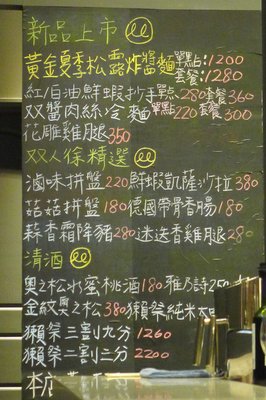 新品上市
黃金夏季松露炸醬麵 單點:1200
套餐:1280
紅/白油鮮蝦抄手 單点280 套餐360
双醬肉絲冷麵 單點220 套餐300
花雕雞腿350
双人份精選
滷味拼盤220 鮮蝦凱薩沙拉380
菇菇拼盤180 德國帶骨香腸180
蒜香霜降豬280 迷迭香雞腿280
清酒
奥之松水蜜桃酒180 雅乃詩250
金紋奥之松380 獺祭純米
獺祭三割九分 1260
獺祭二割三分 2200